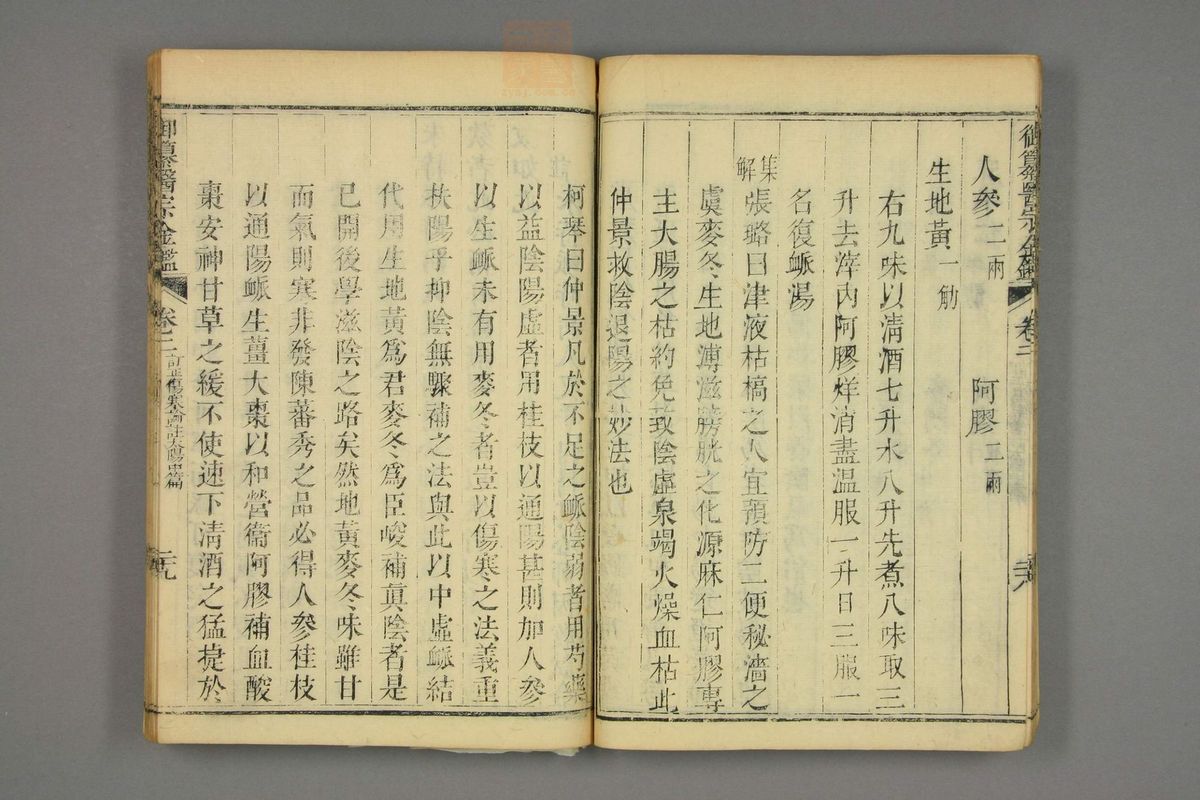 御纂醫宗金鑑 卷二 二十八
人參二兩 阿膠二兩
生地黃一觔
右九味以清酒七升水八升先煮八味取三
升去滓內阿膠烊消盡溫服一升日三服一
名復脈湯
集解張璐曰津液枯槁之人宜預防二便秘濇之
虞麥冬生地溥滋膀胱之化源麻仁阿膠專
主大腸之枯約免致陰虛泉竭火燥血枯此
仲景救陰退陽之妙法也
柯琴曰仲景凡於不足之脈陰弱者用芍藥
以益陰陽虛者用桂枝以通陽甚則加人參
以生脈未有用麥冬者豈以傷寒之法義重
扶陽乎抑陰無驟補之法與此以中虛脈結
代用生地黃爲君麥冬爲臣峻補真陰者是
已開後學滋陰之路矣然地黃麥冬味雖甘
而氣則寒非發陳蕃秀之品必得人參桂枝
以通陽脈生薑大棗以和營衛阿膠補血酸
棗安神甘草之緩不使速下清酒之猛捷於
御纂醫宗金鑑 卷二 訂正傷寒論註太陽中篇 二十九